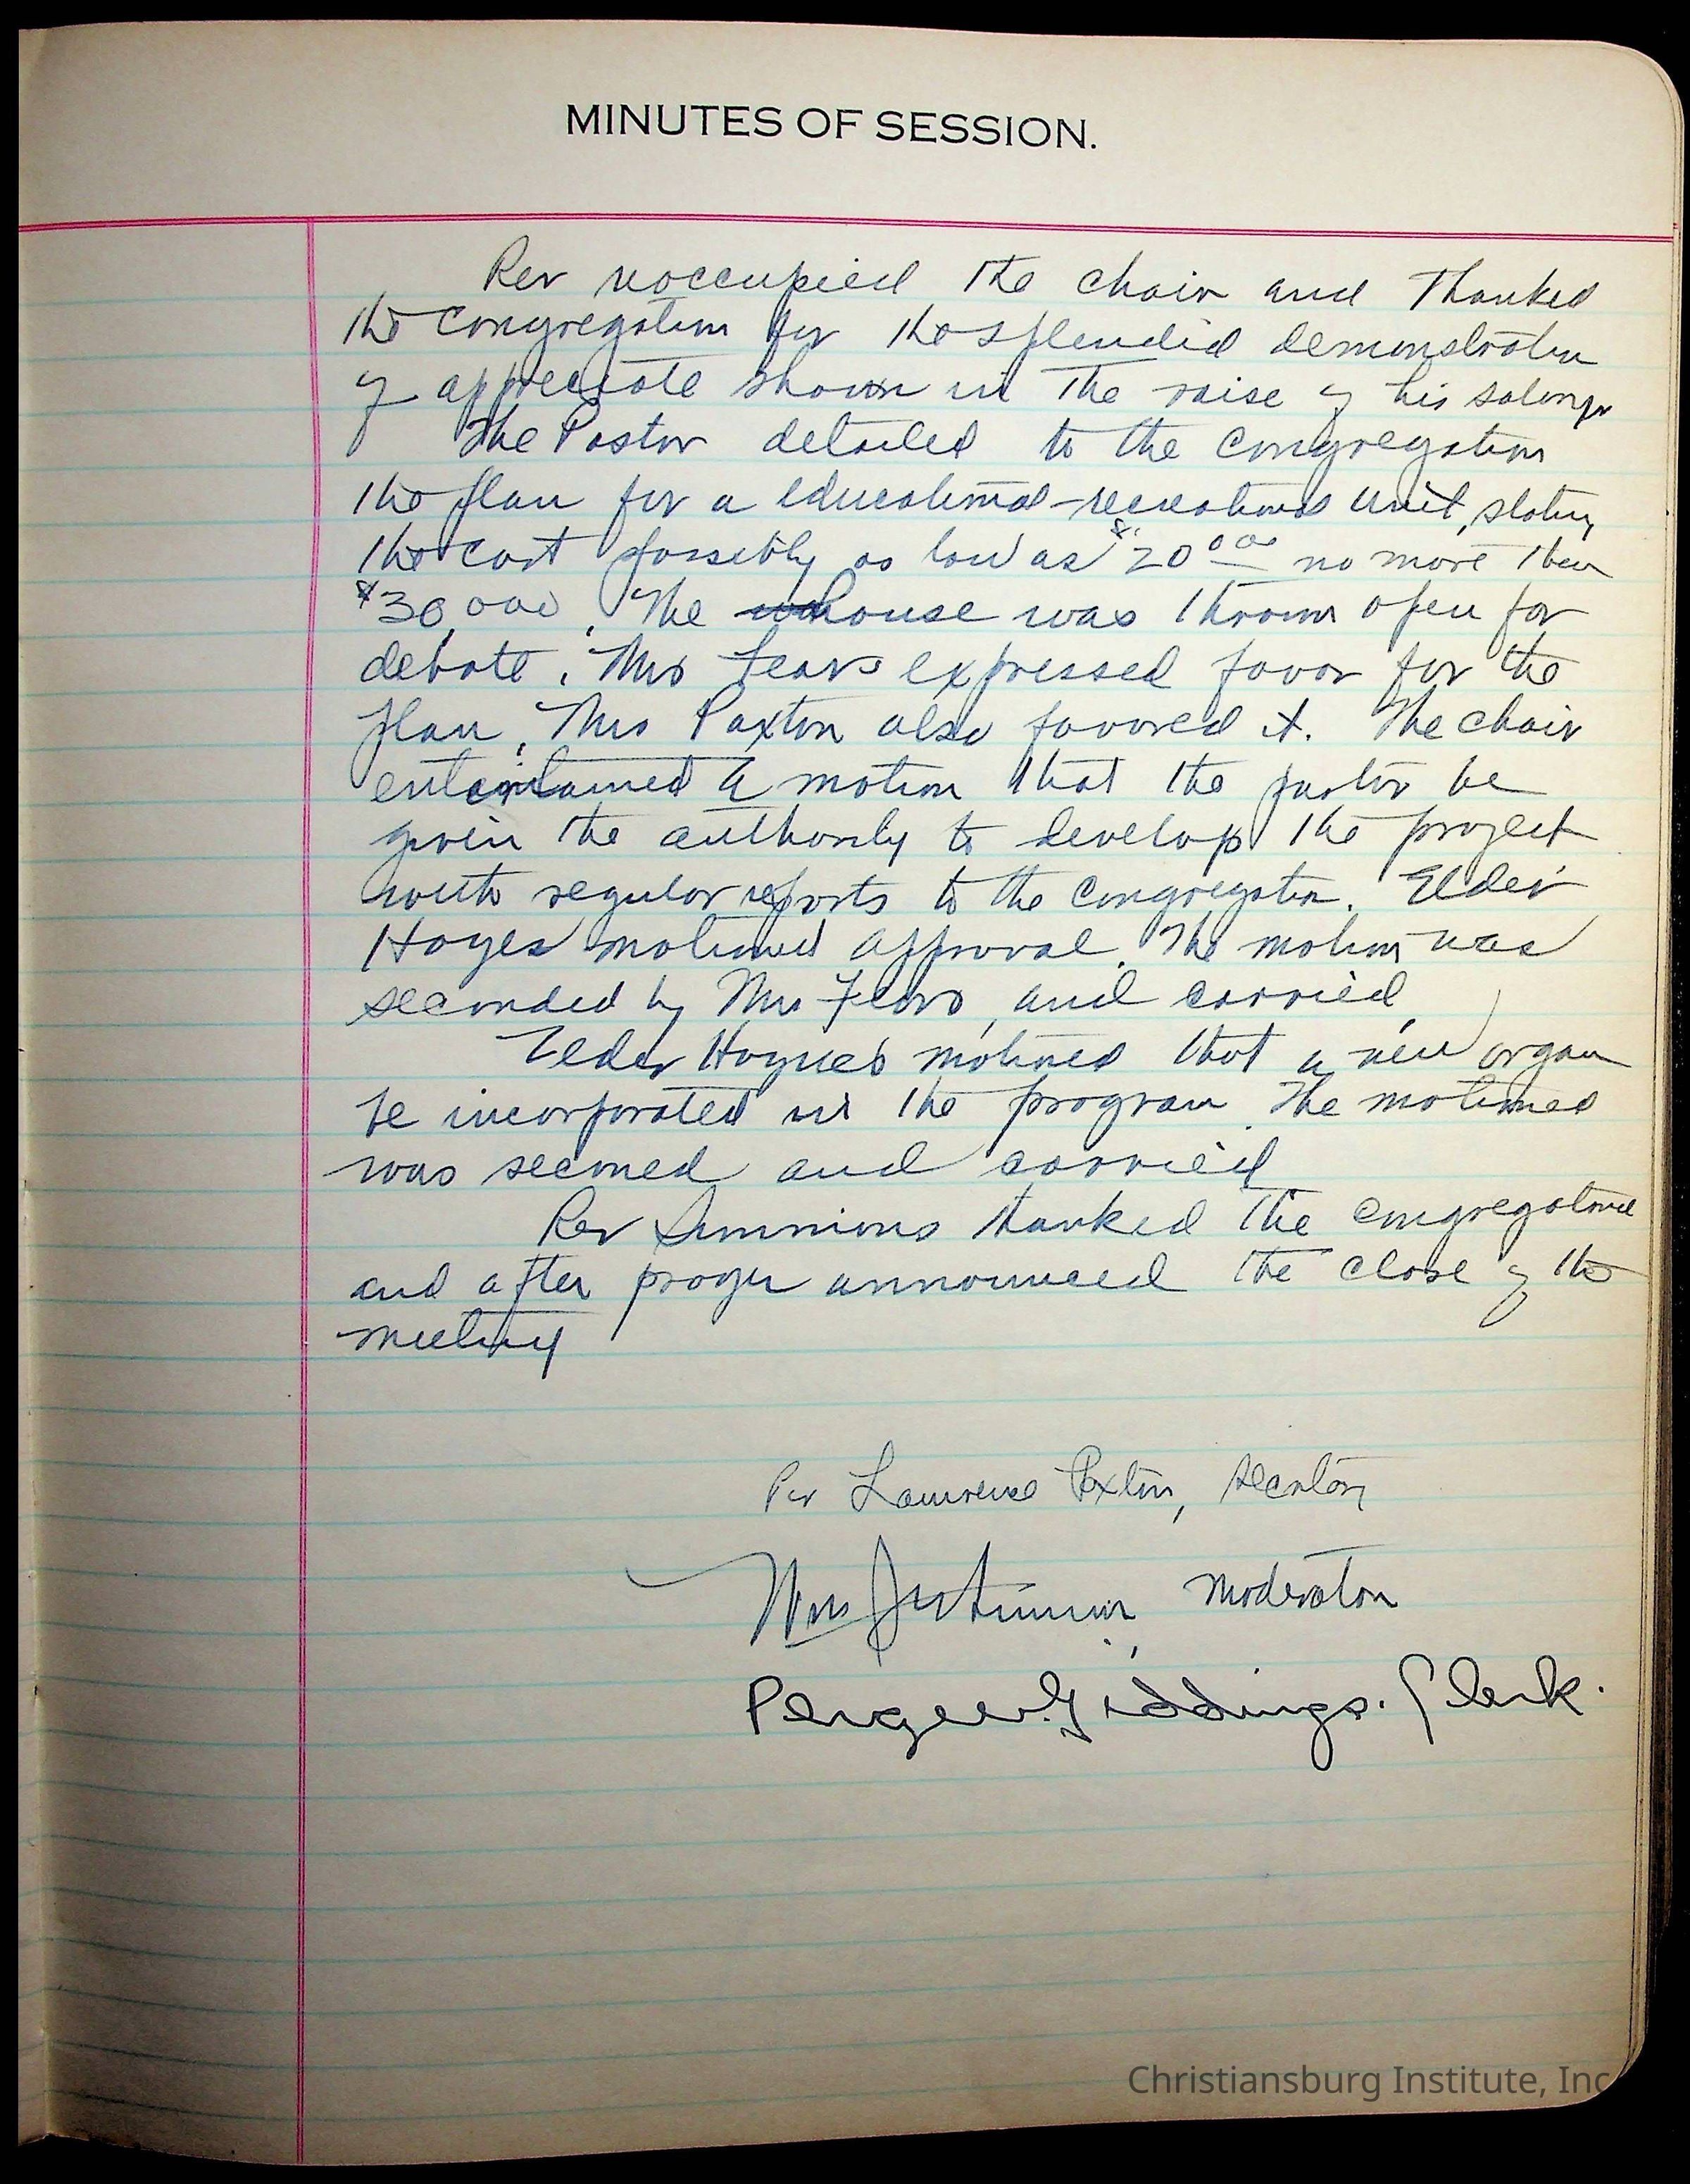 MINUTES OF SESSION.
Rev reoccupied the chair and Thanked
the congregation for the splendid demonstration
of appreciate shown in the raise of his salary
The Pastor detailed to the congregation
the plan for a educational-recreational unit, stating
the cost possibly as low as $20,000 no more than
$30,000. The house was thrown open for
debate. Mrs expressed favor for the
plan. Mrs Paxton also favored it. The chair
entertained a motion that the pastor be
given the authority to develop the project
with regular reports to the congregation. Elder
Hayes motioned approval. The motion was
seconded by Mrs and carried.
Elder motioned that a new organ
be incorporated in the program. The motioned
was seconed and carried
Rev Simmions thanked the congregation
and after prayer announced the close of the
meeting
Per Lawrence Paxton, secretary
Wm Moderator
Giddings. Clerk.
Christiansburg Institute, Inc